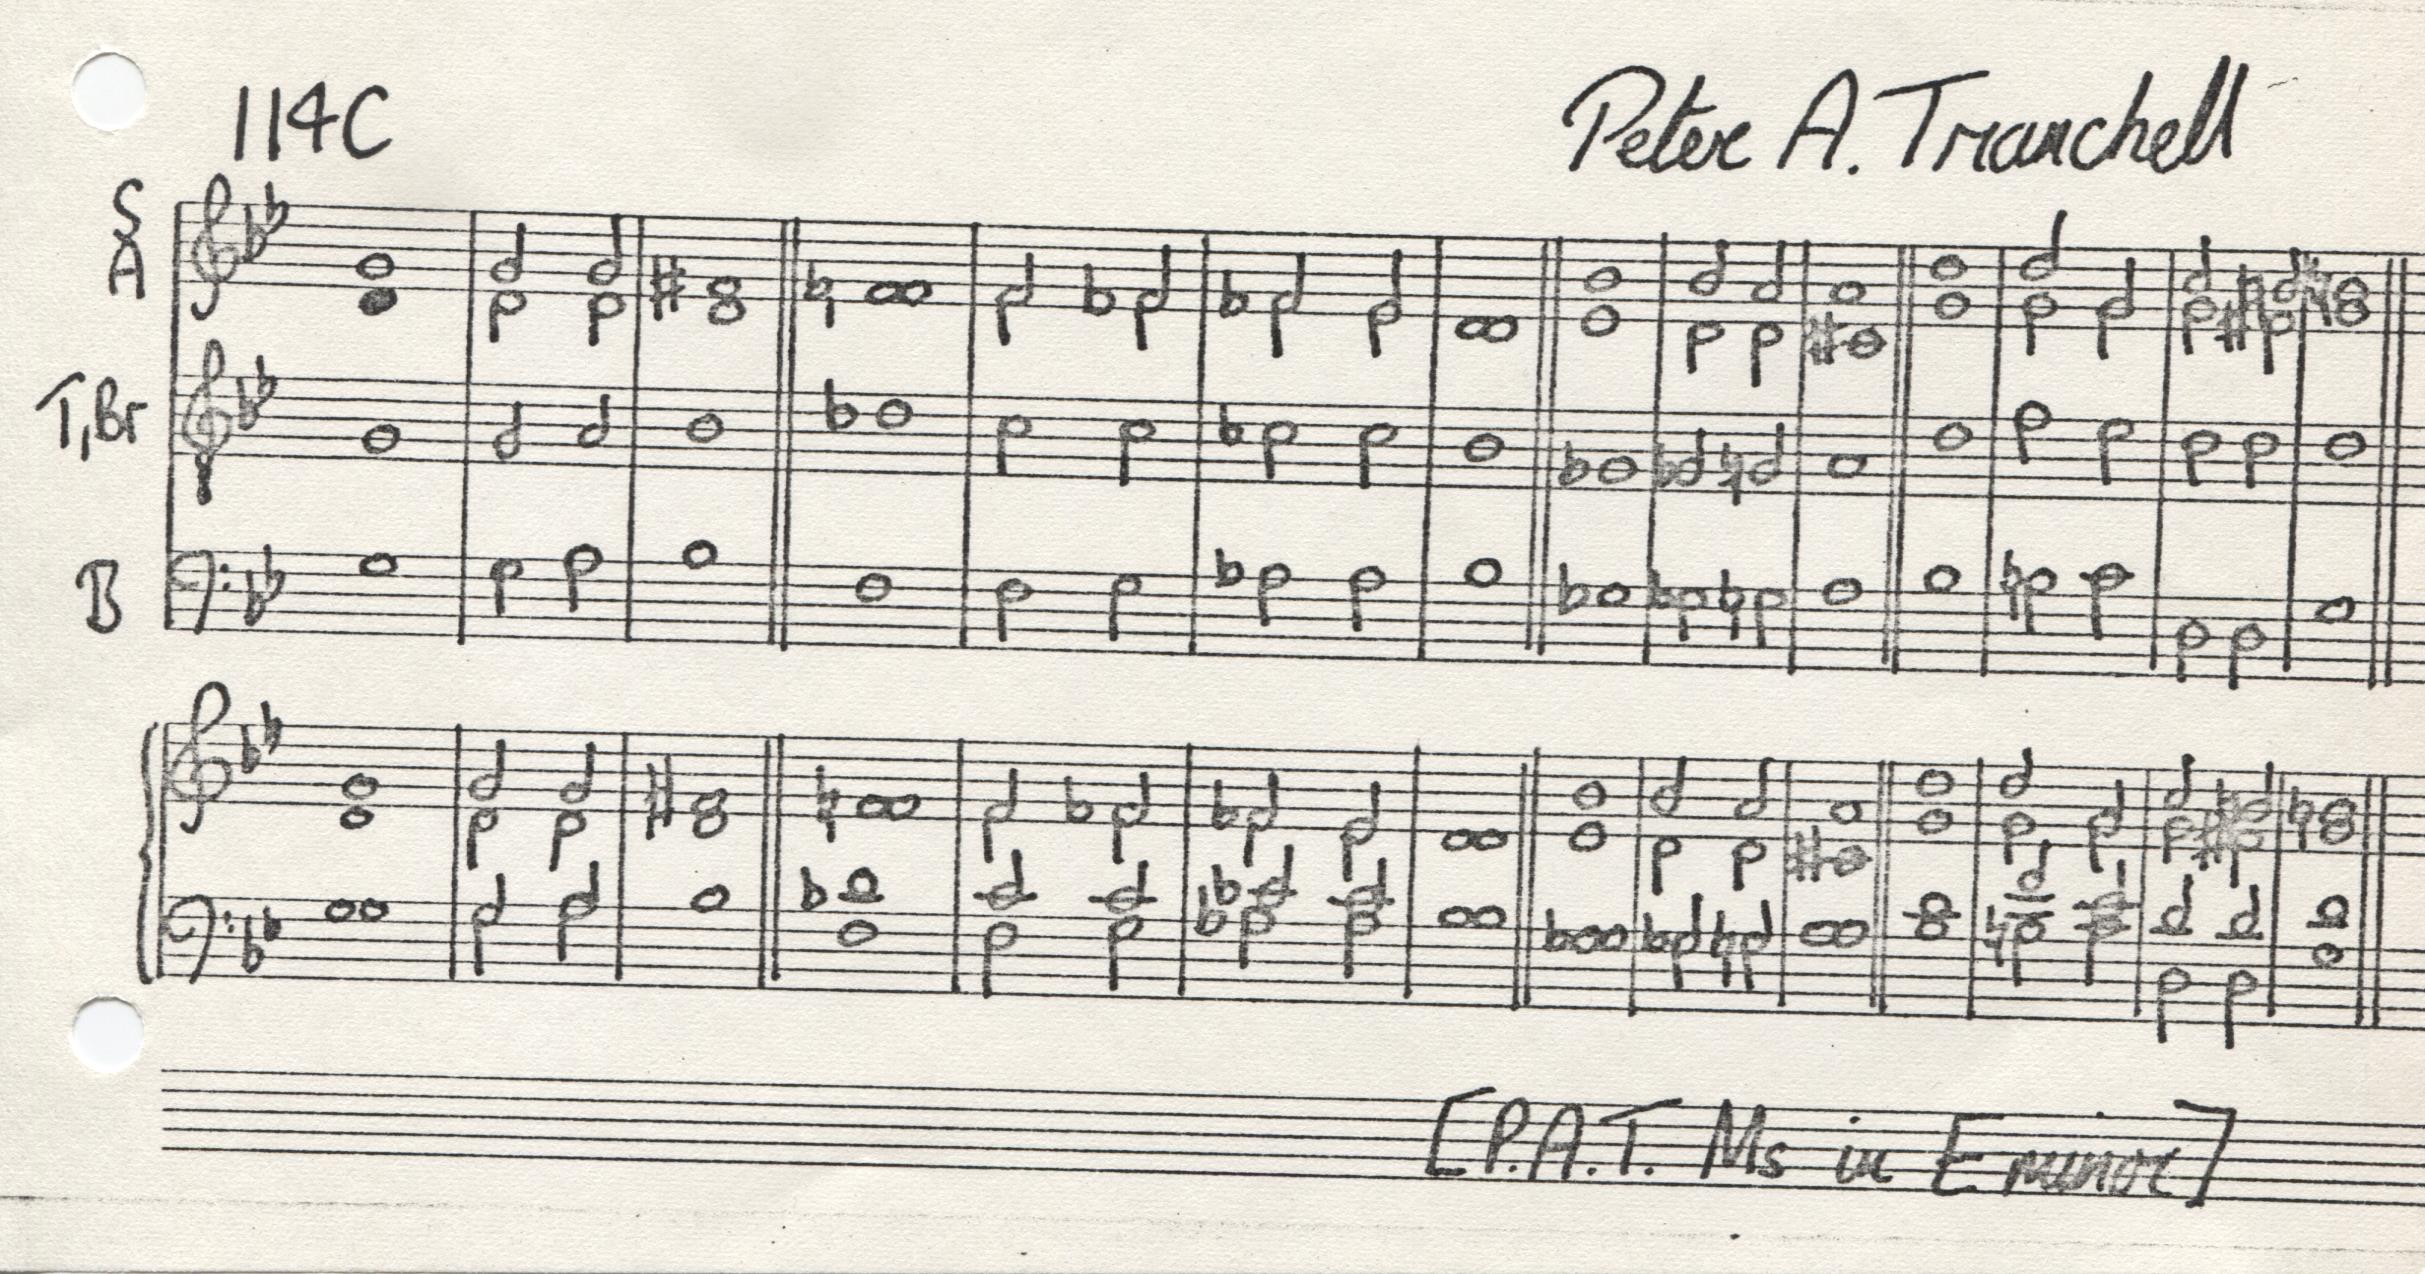 114C
Peter A. Tranchell
S
A
T,Br
B
[P.A.T. Ms in E minor]